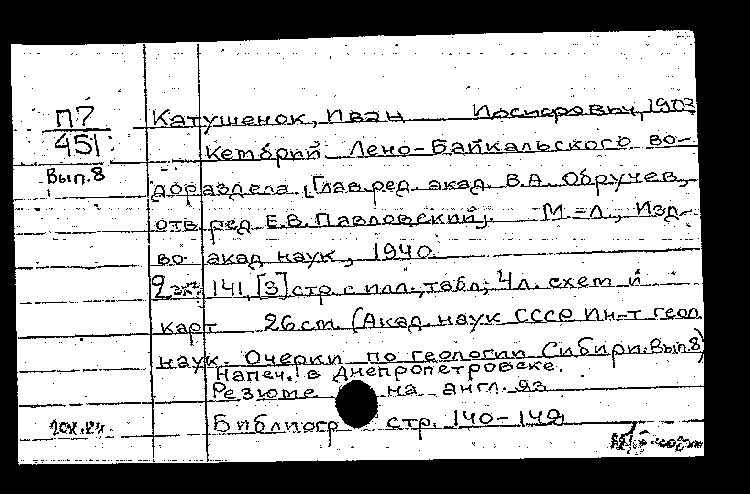 П7
451
Вып.8
Катушенок, Иван Иосифович, 1903
Кембрий Лено-Байкальского во-
дораздела. [Глав. ред. акад. В.А. Обручев,
отв. ред. Е.В. Павловский]. М.-Л., Изд-
во акад. наук, 1940.
2 экз. 141, [3] стр. с илл., табл; 4 л. схем и
карт 26 см. (Акад. наук СССР Ин-т геол
наук. Очерки по геологии Сибири. Вып.8)
Напеч. в Днепропетровске.
Резюме на англ. яз
Библиогр стр. 140-142